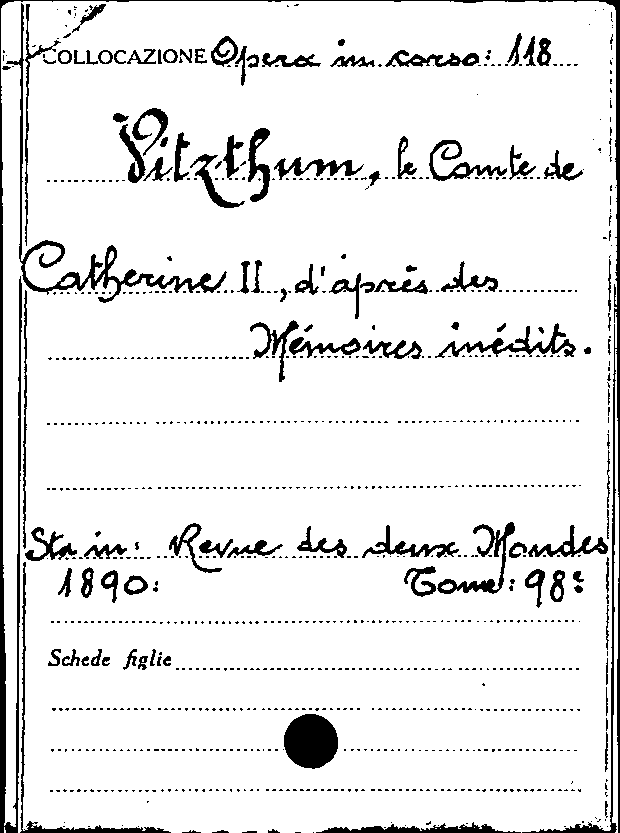 COLLOCAZIONE Opera in corso: 118
Vitzthum, le Comte de
Catherine II, d'après des
Mémoires inédits.
Sta in: Revue des deux Mondes
1890: Tome: 98e
Schede figlie